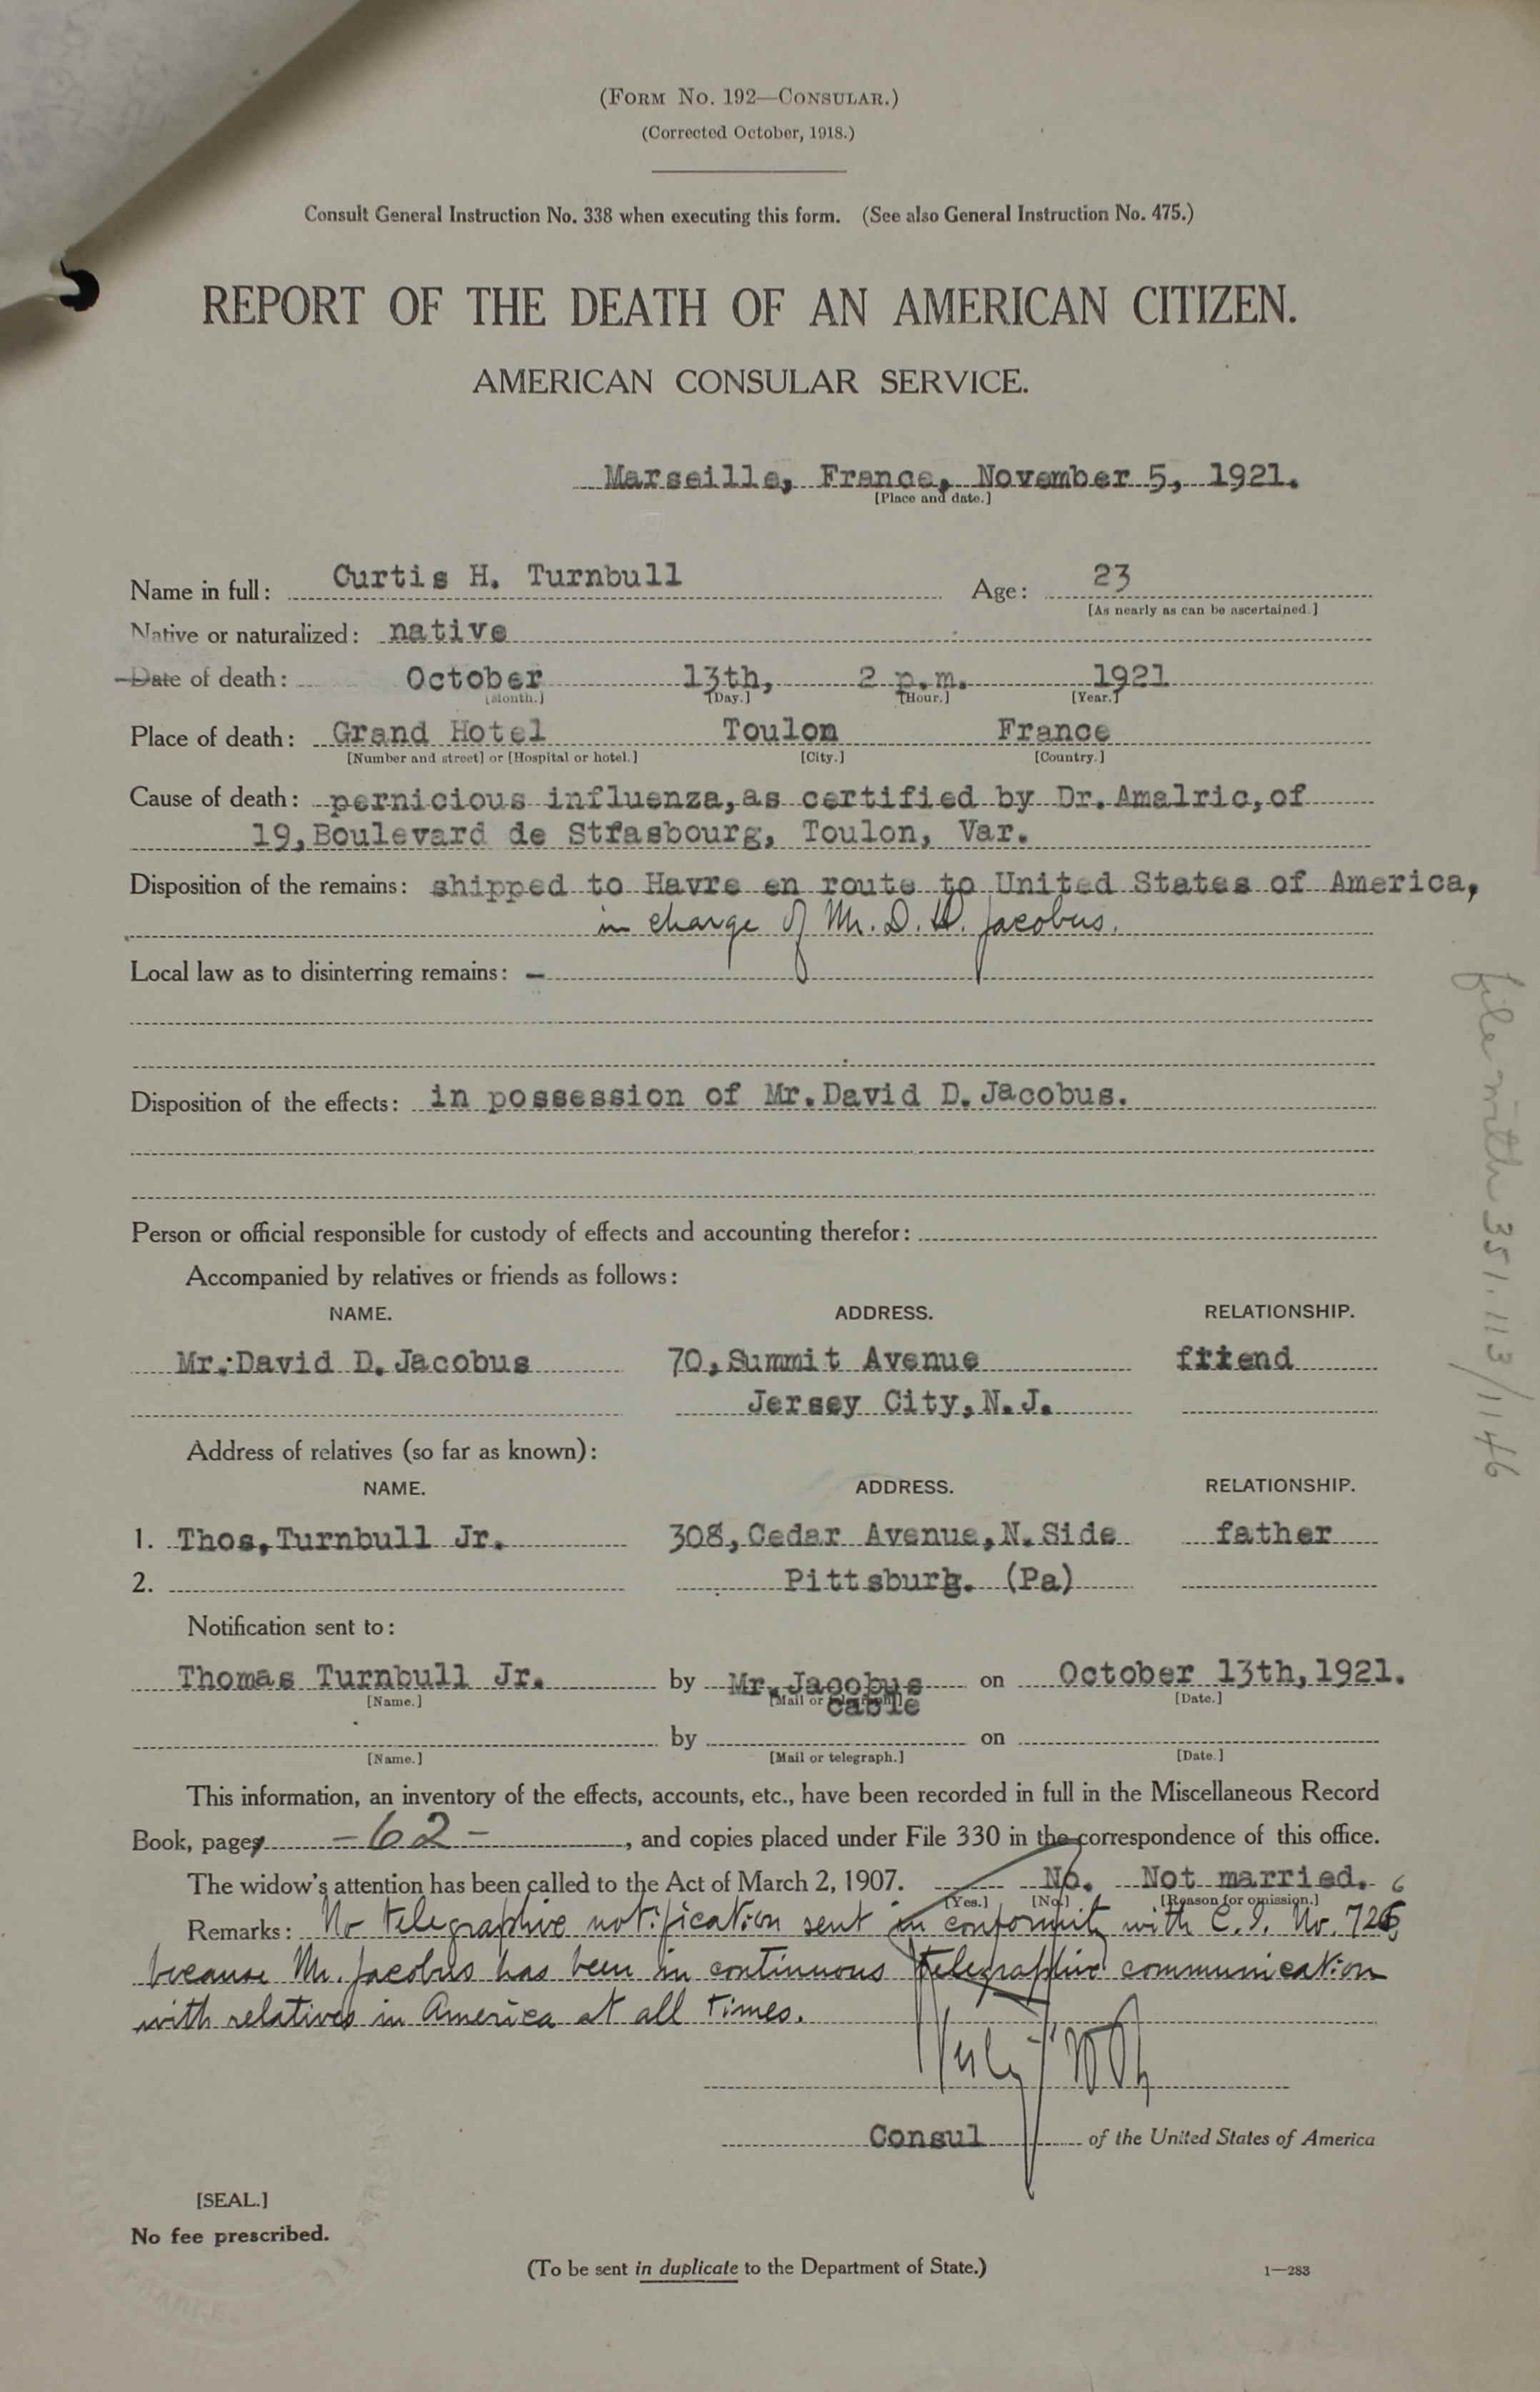 (FORM NO. 192—CONSULAR.)
(Corrected October, 1918.)
Consult General Instruction No. 338 when executing this form. (See also General Instruction No. 475.)
REPORT OF THE DEATH OF AN AMERICAN CITIZEN.
AMERICAN CONSULAR SERVICE.
Marseille, France, November 5, 1921.
[Place and date.]
Name in full: Curtis H. Turnbull Age: 23
[As nearly as can be ascertained.]
Native or naturalized: native
Date of death: October 13th, 2 p.m. 1921
[Month.] [Day.] [Hour.] [Year.]
Place of death: Grand Hotel Toulon France
[Number and street] or [Hospital or hotel.] [City.] [Country.]
Cause of death: pernicious influenza, as certified by Dr. Amalric, of
19, Boulevard de Strasbourg, Toulon, Var.
Disposition of the remains: shipped to Havre en route to United States of America,
in charge of Mr. D. D. Jacobus.
Local law as to disinterring remains: —
Disposition of the effects: in possession of Mr. David D. Jacobus.
Person or official responsible for custody of effects and accounting therefor:
Accompanied by relatives or friends as follows:
NAME. ADDRESS. RELATIONSHIP.
Mr. David D. Jacobus 70, Summit Avenue friend
Jersey City, N.J.
Address of relatives (so far as known):
NAME. ADDRESS. RELATIONSHIP.
1. Thos. Turnbull Jr. 308, Cedar Avenue, N. Side father
2. Pittsburg. (Pa)
Notification sent to:
Thomas Turnbull Jr. by Mr. Jacobus on October 13th, 1921.
[Name.] [Mail or telegraph.] cable [Date.]
by on
[Name.] [Mail or telegraph.] [Date.]
This information, an inventory of the effects, accounts, etc., have been recorded in full in the Miscellaneous Record
Book, pages -62-, and copies placed under File 330 in the correspondence of this office.
The widow's attention has been called to the Act of March 2, 1907. No. Not married.
[Yes.] [No.] [Reason for omission.]
Remarks: No telegraphic notification sent in conformity with C.I. No. 726,
because Mr. Jacobus has been in continuous telegraphic communication
with relatives in America at all times.
Consul of the United States of America
[SEAL.]
No fee prescribed.
(To be sent in duplicate to the Department of State.) 1—283
file with 351.113/1146